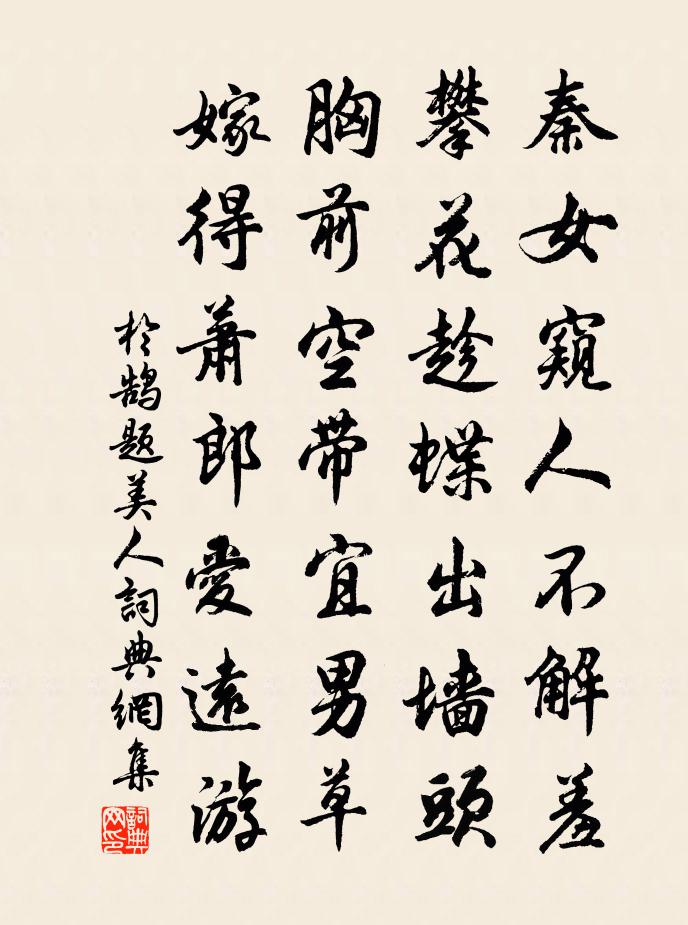 秦女窺人不解羞
攀花趁蝶出墻頭
胸前空带宜男草
嫁得蕭郎愛遠游
於鵠題美人詞典網集
詞典網印